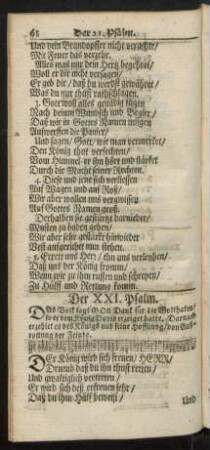 61 Der 21. Psalm.
Und dein Brandopffer nicht verachte/
Mit Feuer das verzehr.
Alles was nur dein Hertz begehret/
Woll er dir nicht versagen/
Er geb dir/ daß du werdst gewähret/
Was du nur thust rathschlagen.
3. Gott woll alles gnädig fügen
Nach deinem Wunsch und Begier/
Daß wir in Gottes Namen mögen
Auffwerffen die Panier/
Und sagen/ Gott/ wie man vermercket
Den König thut verfechten/
Vom Himmel er ihn hört und stärcket
Durch die Macht seiner Rechten.
4. Diese und jene sich verliessen
Auf Wagen und auf Roß/
Wir aber wollen uns vergwissen
Auf Gottes Namen groß.
Derhalben sie gestürtzt darnieder/
Musten zu boden gehen/
Wir aber sind gestärckt hinwieder
Vest auffgericht nun stehen.
5. Errett uns Herr/ thu uns verleihen/
Daß uns der König fromm/
Wenn wir zu ihm ruffen und schreyen/
Zu Hülff und Rettung komm.
Der XXI. Psalm.
Das Volck sagt GOtt Danck für die Wolthaten/
so er dem König David erzeiget hatte. Darnach
erzehlet es des Königs
rottung der Feinde.
DEr König wird sich freuen/ HERR/
Drum daß du ihn thust retten/
Und gwaltiglich vertreten/
Er wird sich deß erfreuen sehr/
Daß du ihm Hülf beweist/
Und